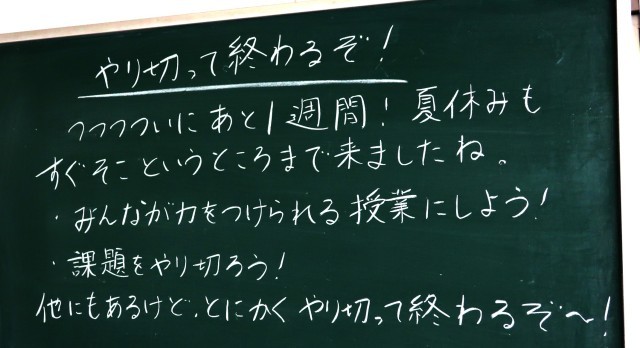 やり切って終わるぞ!
つつつついにあと1週間!夏休みも
すぐそこというところまで来ましたね。
・みんなが力をつけられる授業にしよう!
・課題をやり切ろう!
他にもあるけど、とにかくやり切って終わるぞ〜!